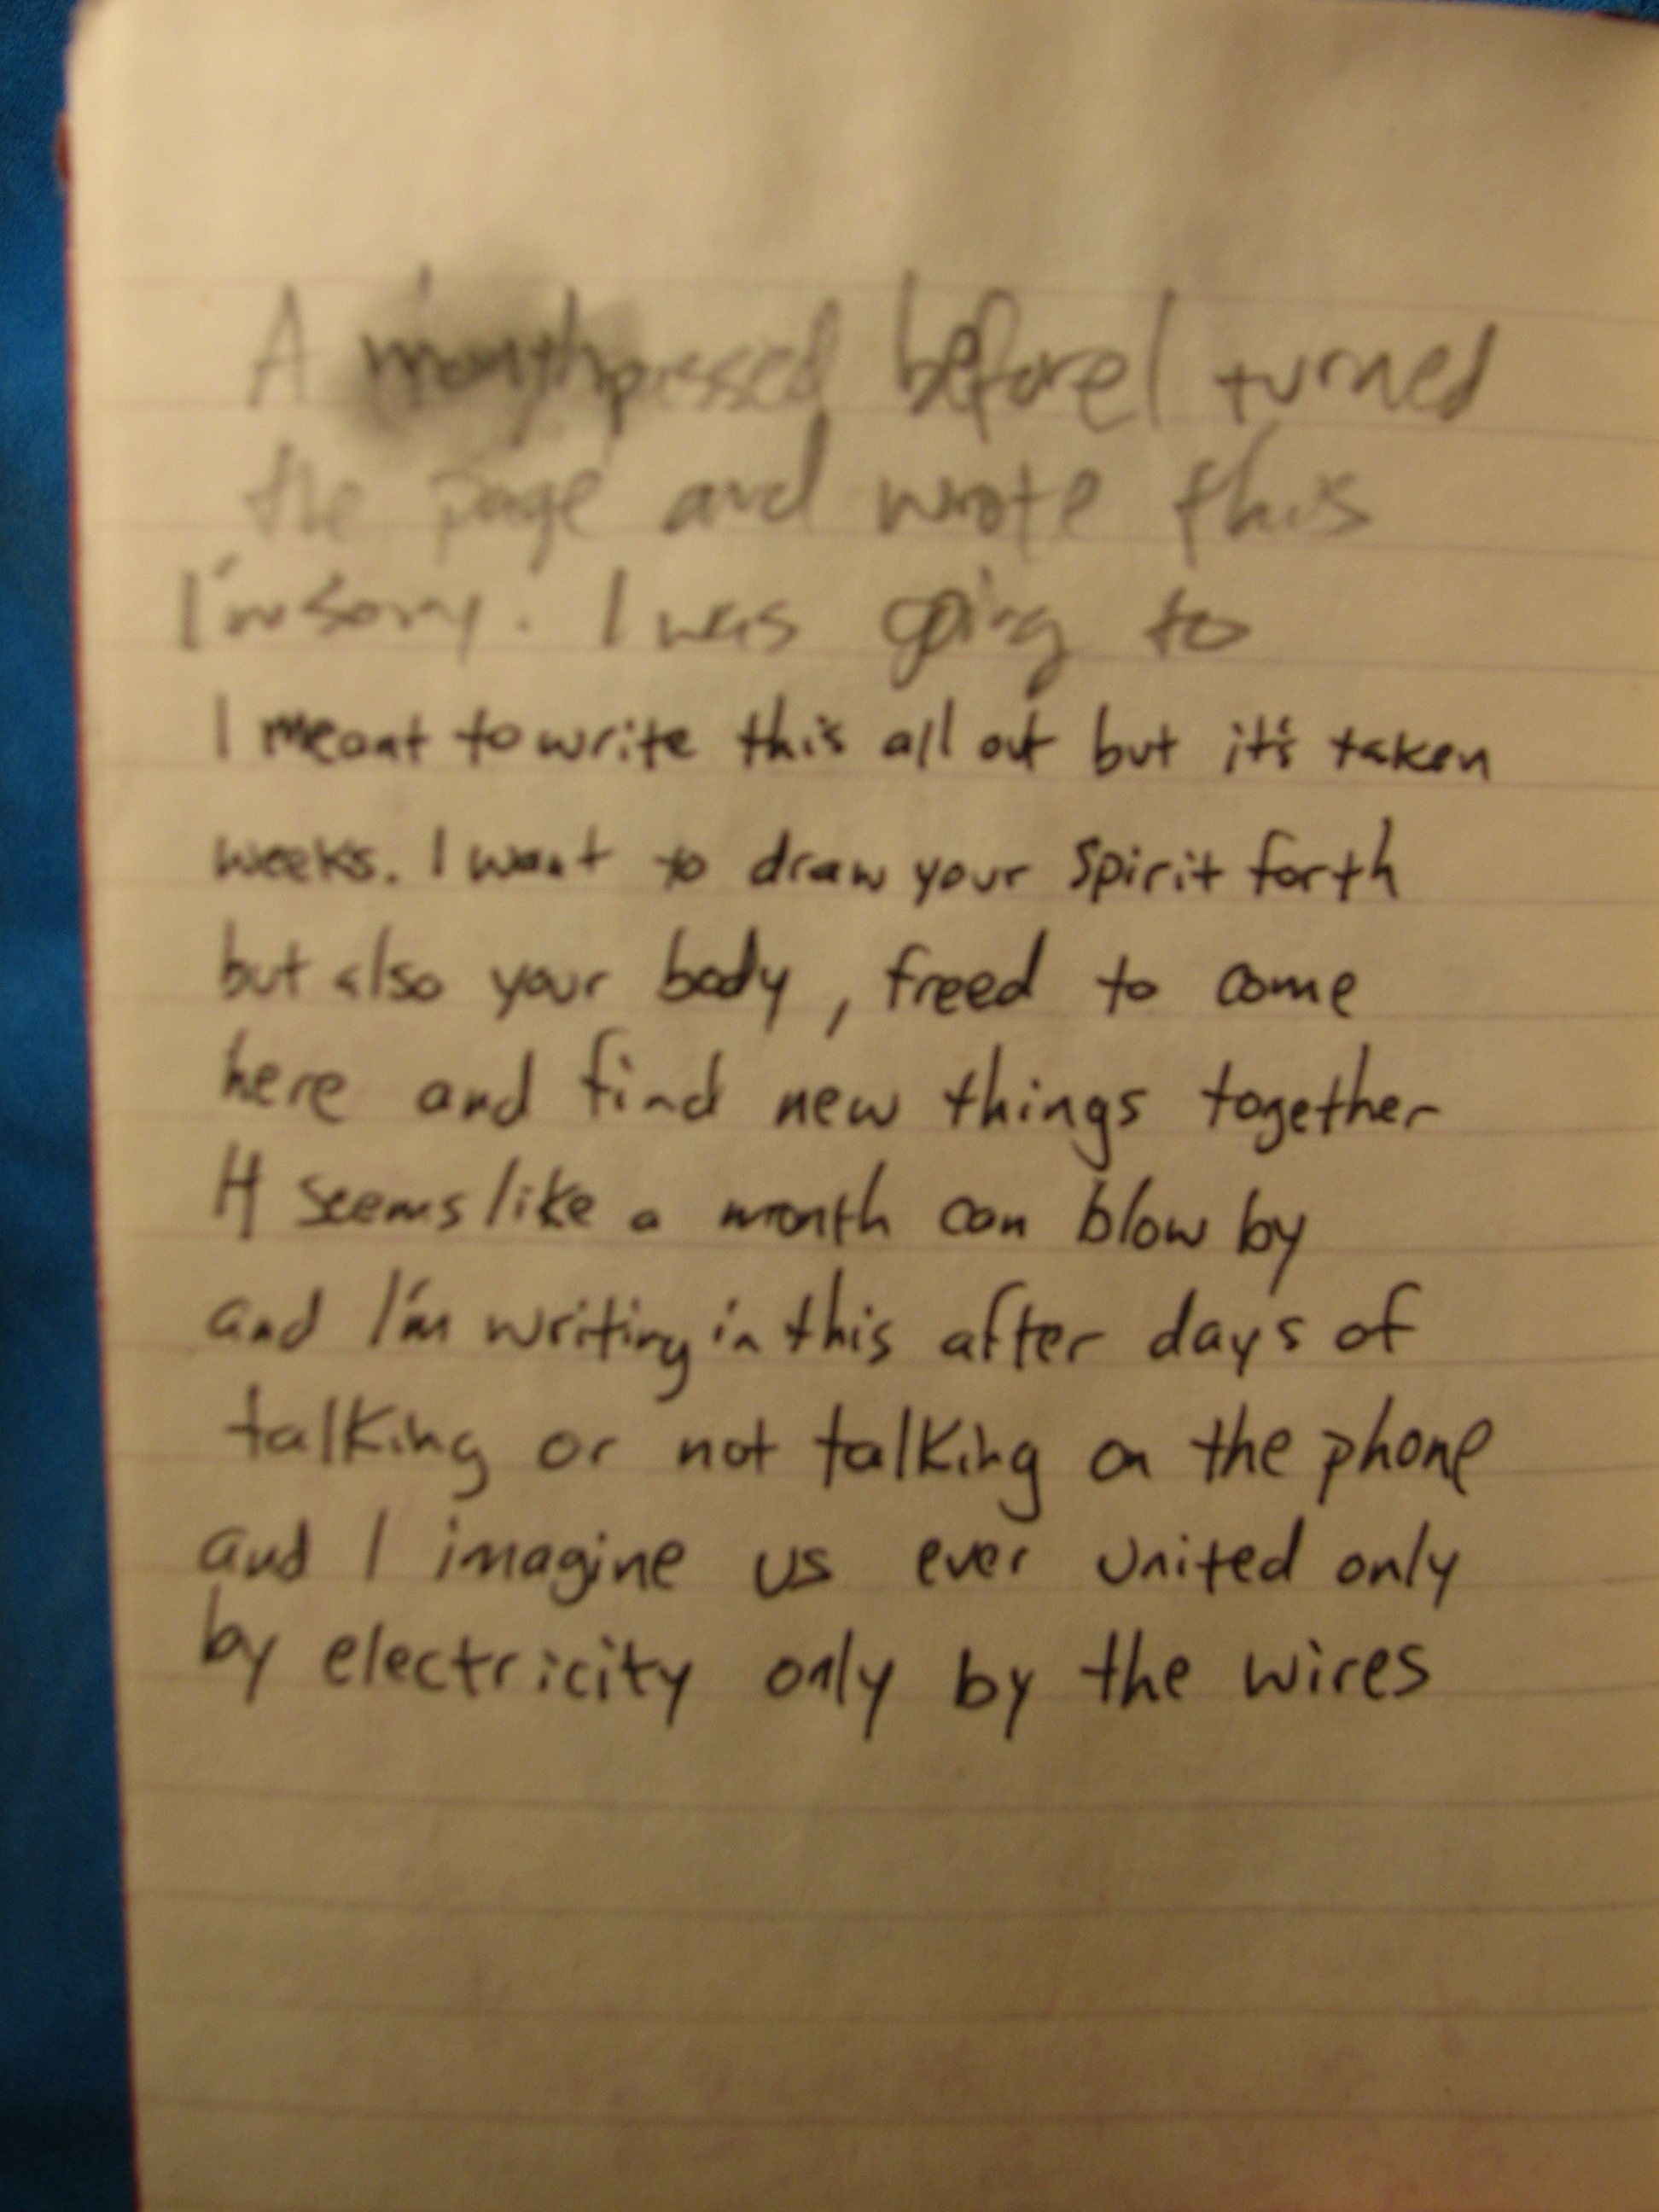 A month passed before I turned
the page and wrote this
I'm sorry. I was going to
I meant to write this all out but it's taken
weeks. I want to draw your spirit forth
but also your body, freed to come
here and find new things together
It seems like a month can blow by
and I'm writing in this after days of
talking or not talking on the phone
and I imagine us ever united only
by electricity only by the wires